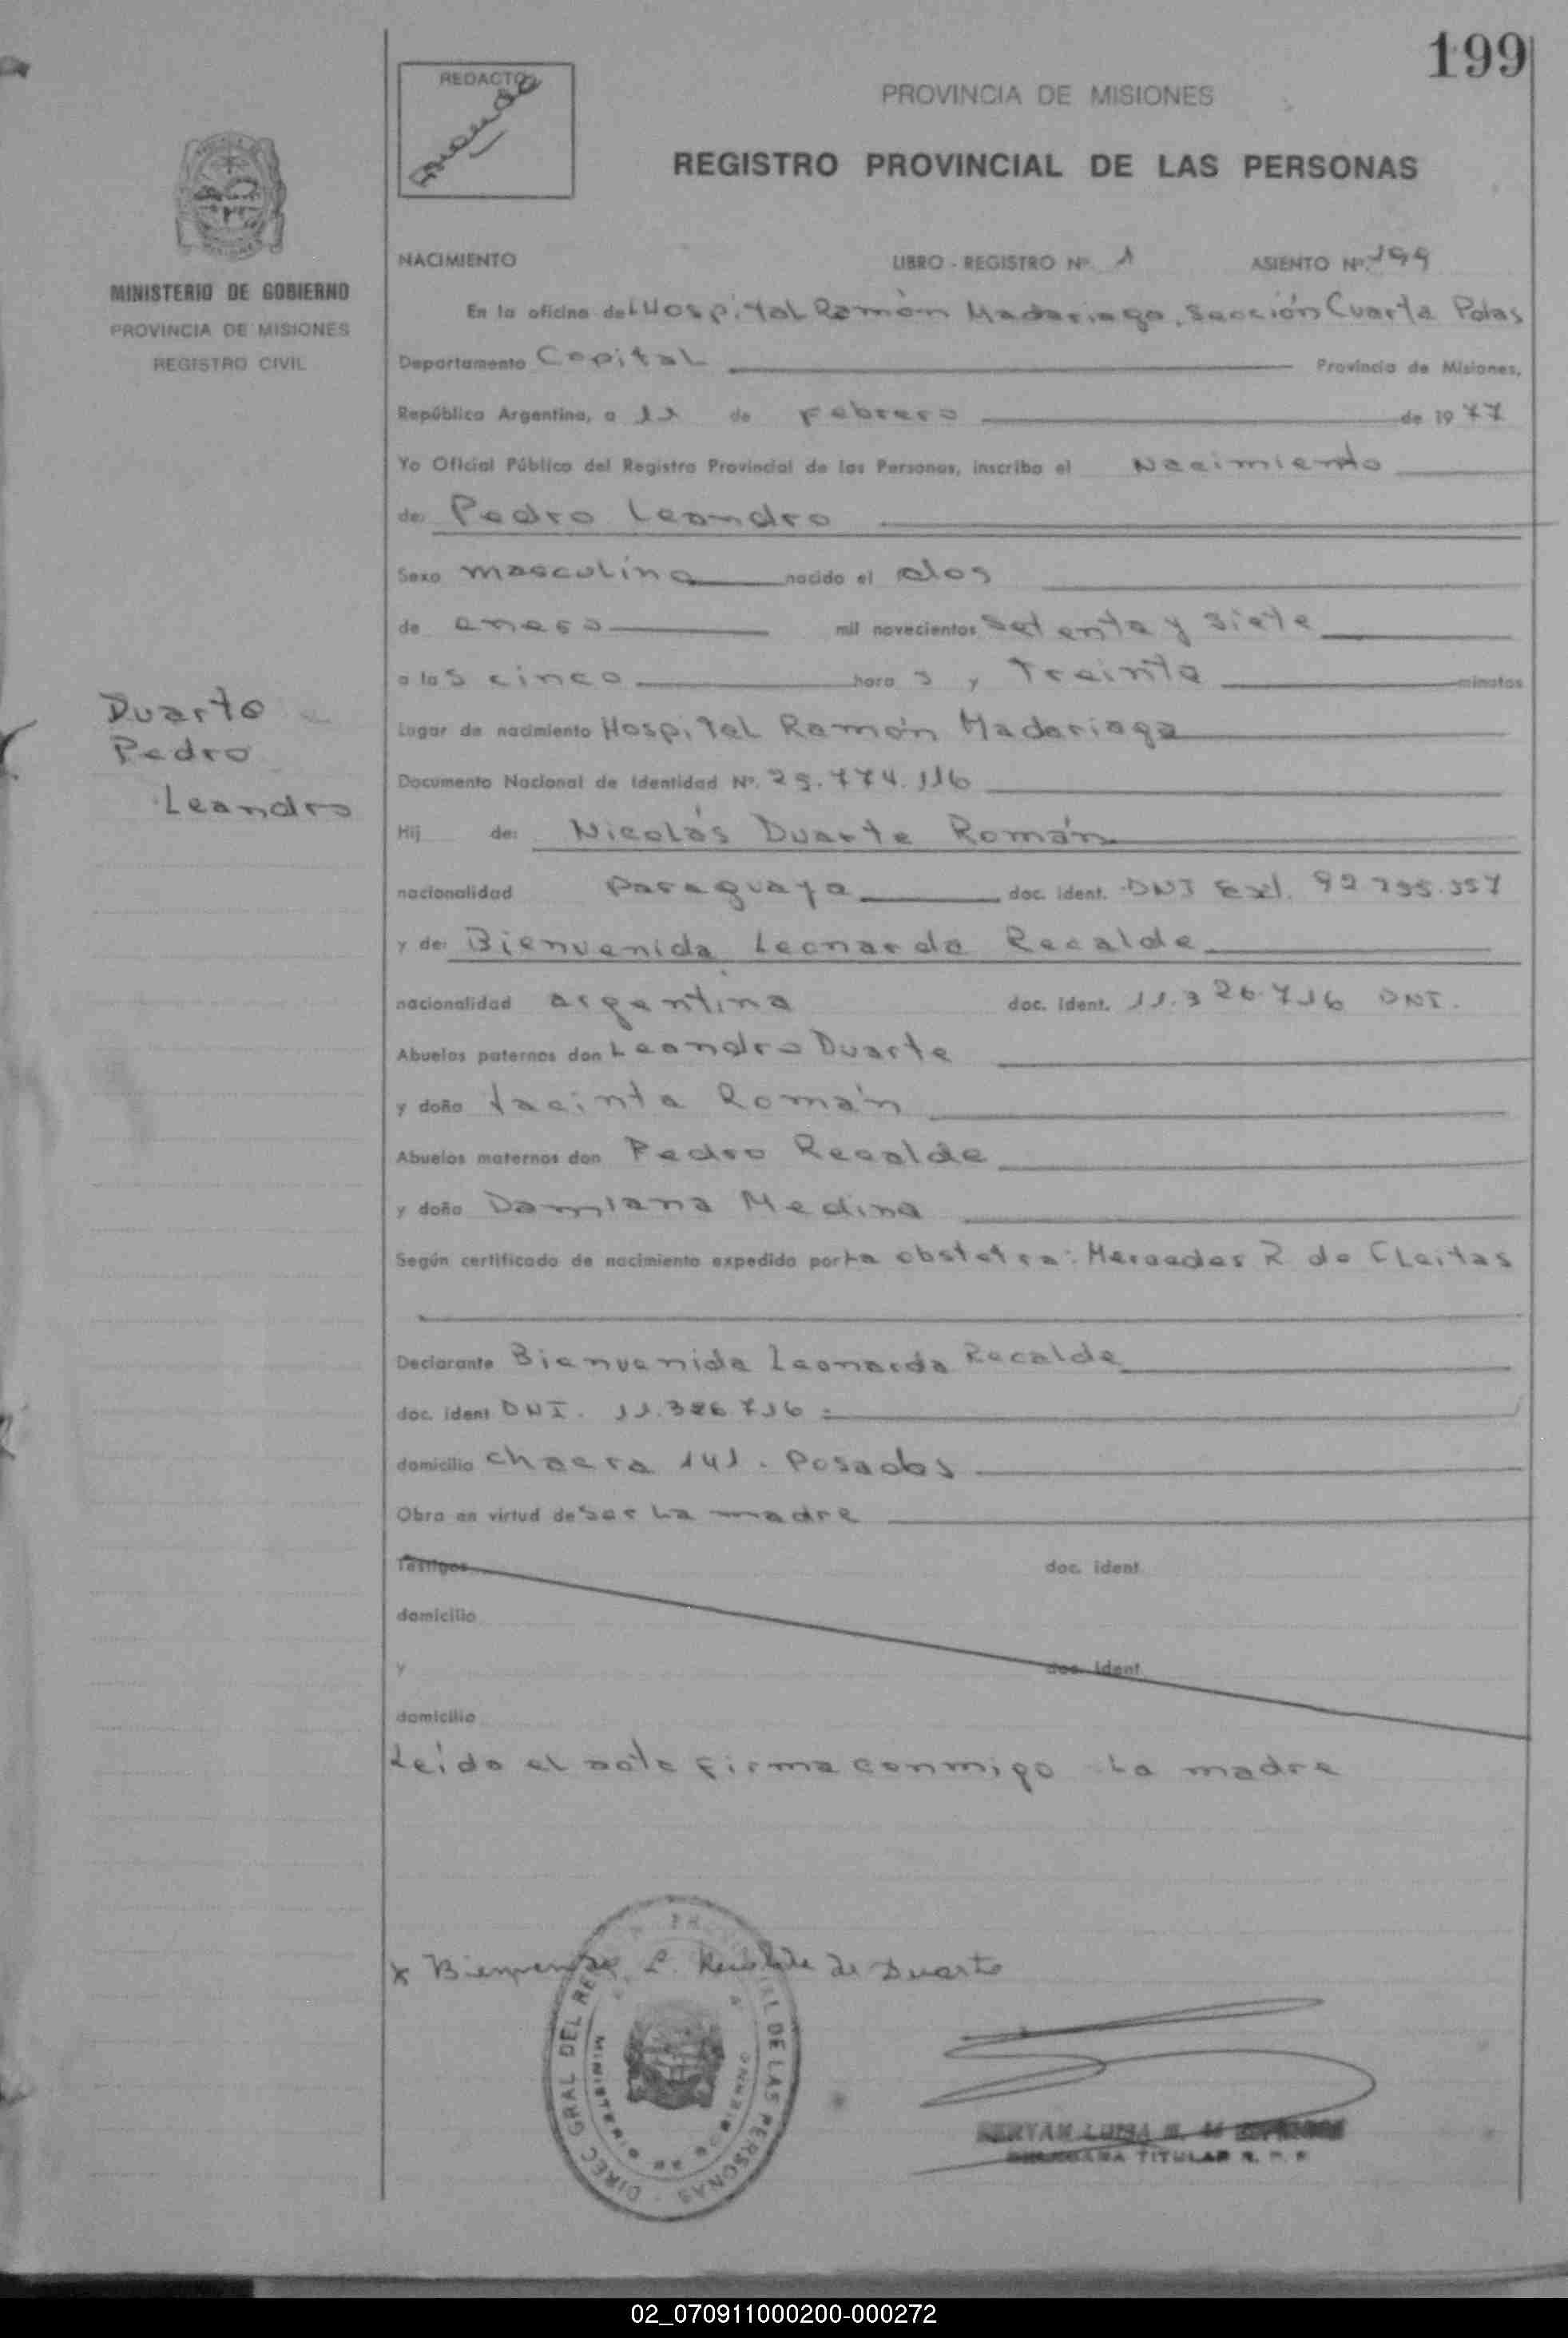 199
REDACTO
PROVINCIA DE MISIONES
REGISTRO PROVINCIAL DE LAS PERSONAS
MINISTERIO DE GOBIERNO
PROVINCIA DE MISIONES
REGISTRO CIVIL
NACIMIENTO LIBRO - REGISTRO Nº 1 ASIENTO Nº 199
En la oficina del Hospital Ramón Madariaga, Sección Cuarta Pdas
Departamento Capital Provincia de Misiones,
República Argentina, a 11 de Febrero de 1977
Yo Oficial Público del Registro Provincial de las Personas, inscribo el Nacimiento
de: Pedro Leandro
Sexo masculino nacido el dos
de enero mil novecientos setenta y siete
a las cinco horas y Treinta minutos
Duarte
Pedro
Leandro
Lugar de nacimiento Hospital Ramón Madariaga
Documento Nacional de Identidad Nº. 25.774.116
Hij de: Nicolás Duarte Román
nacionalidad paraguaya doc. ident. DNI Ext.
y de: Bienvenida Leonarda Recalde
nacionalidad argentina doc. ident. 11.326.716 DNI.
Abuelos paternos don Leandro Duarte
y doña Jacinta Román
Abuelos maternos don Pedro Recalde
y doña Damiana Medina
Según certificado de nacimiento expedido por La obstetra: Mercedes R de Cleitas
Declarante Bienvenida Leonarda Recalde
doc. ident DNI. 11.326.716
domicilio Chacra 141. Posadas
Obra en virtud de ser La madre
Testigos doc. ident.
domicilio
y doc. ident.
domicilio
Leída el acta firma conmigo La madre
x Bienvenida L. Recalde de Duarte
DIREC GRAL DEL REGISTRO PROVINCIAL DE LAS PERSONAS
MINISTERIO DE GOBIERNO
TITULAR R. P. P.
02_070911000200-000272